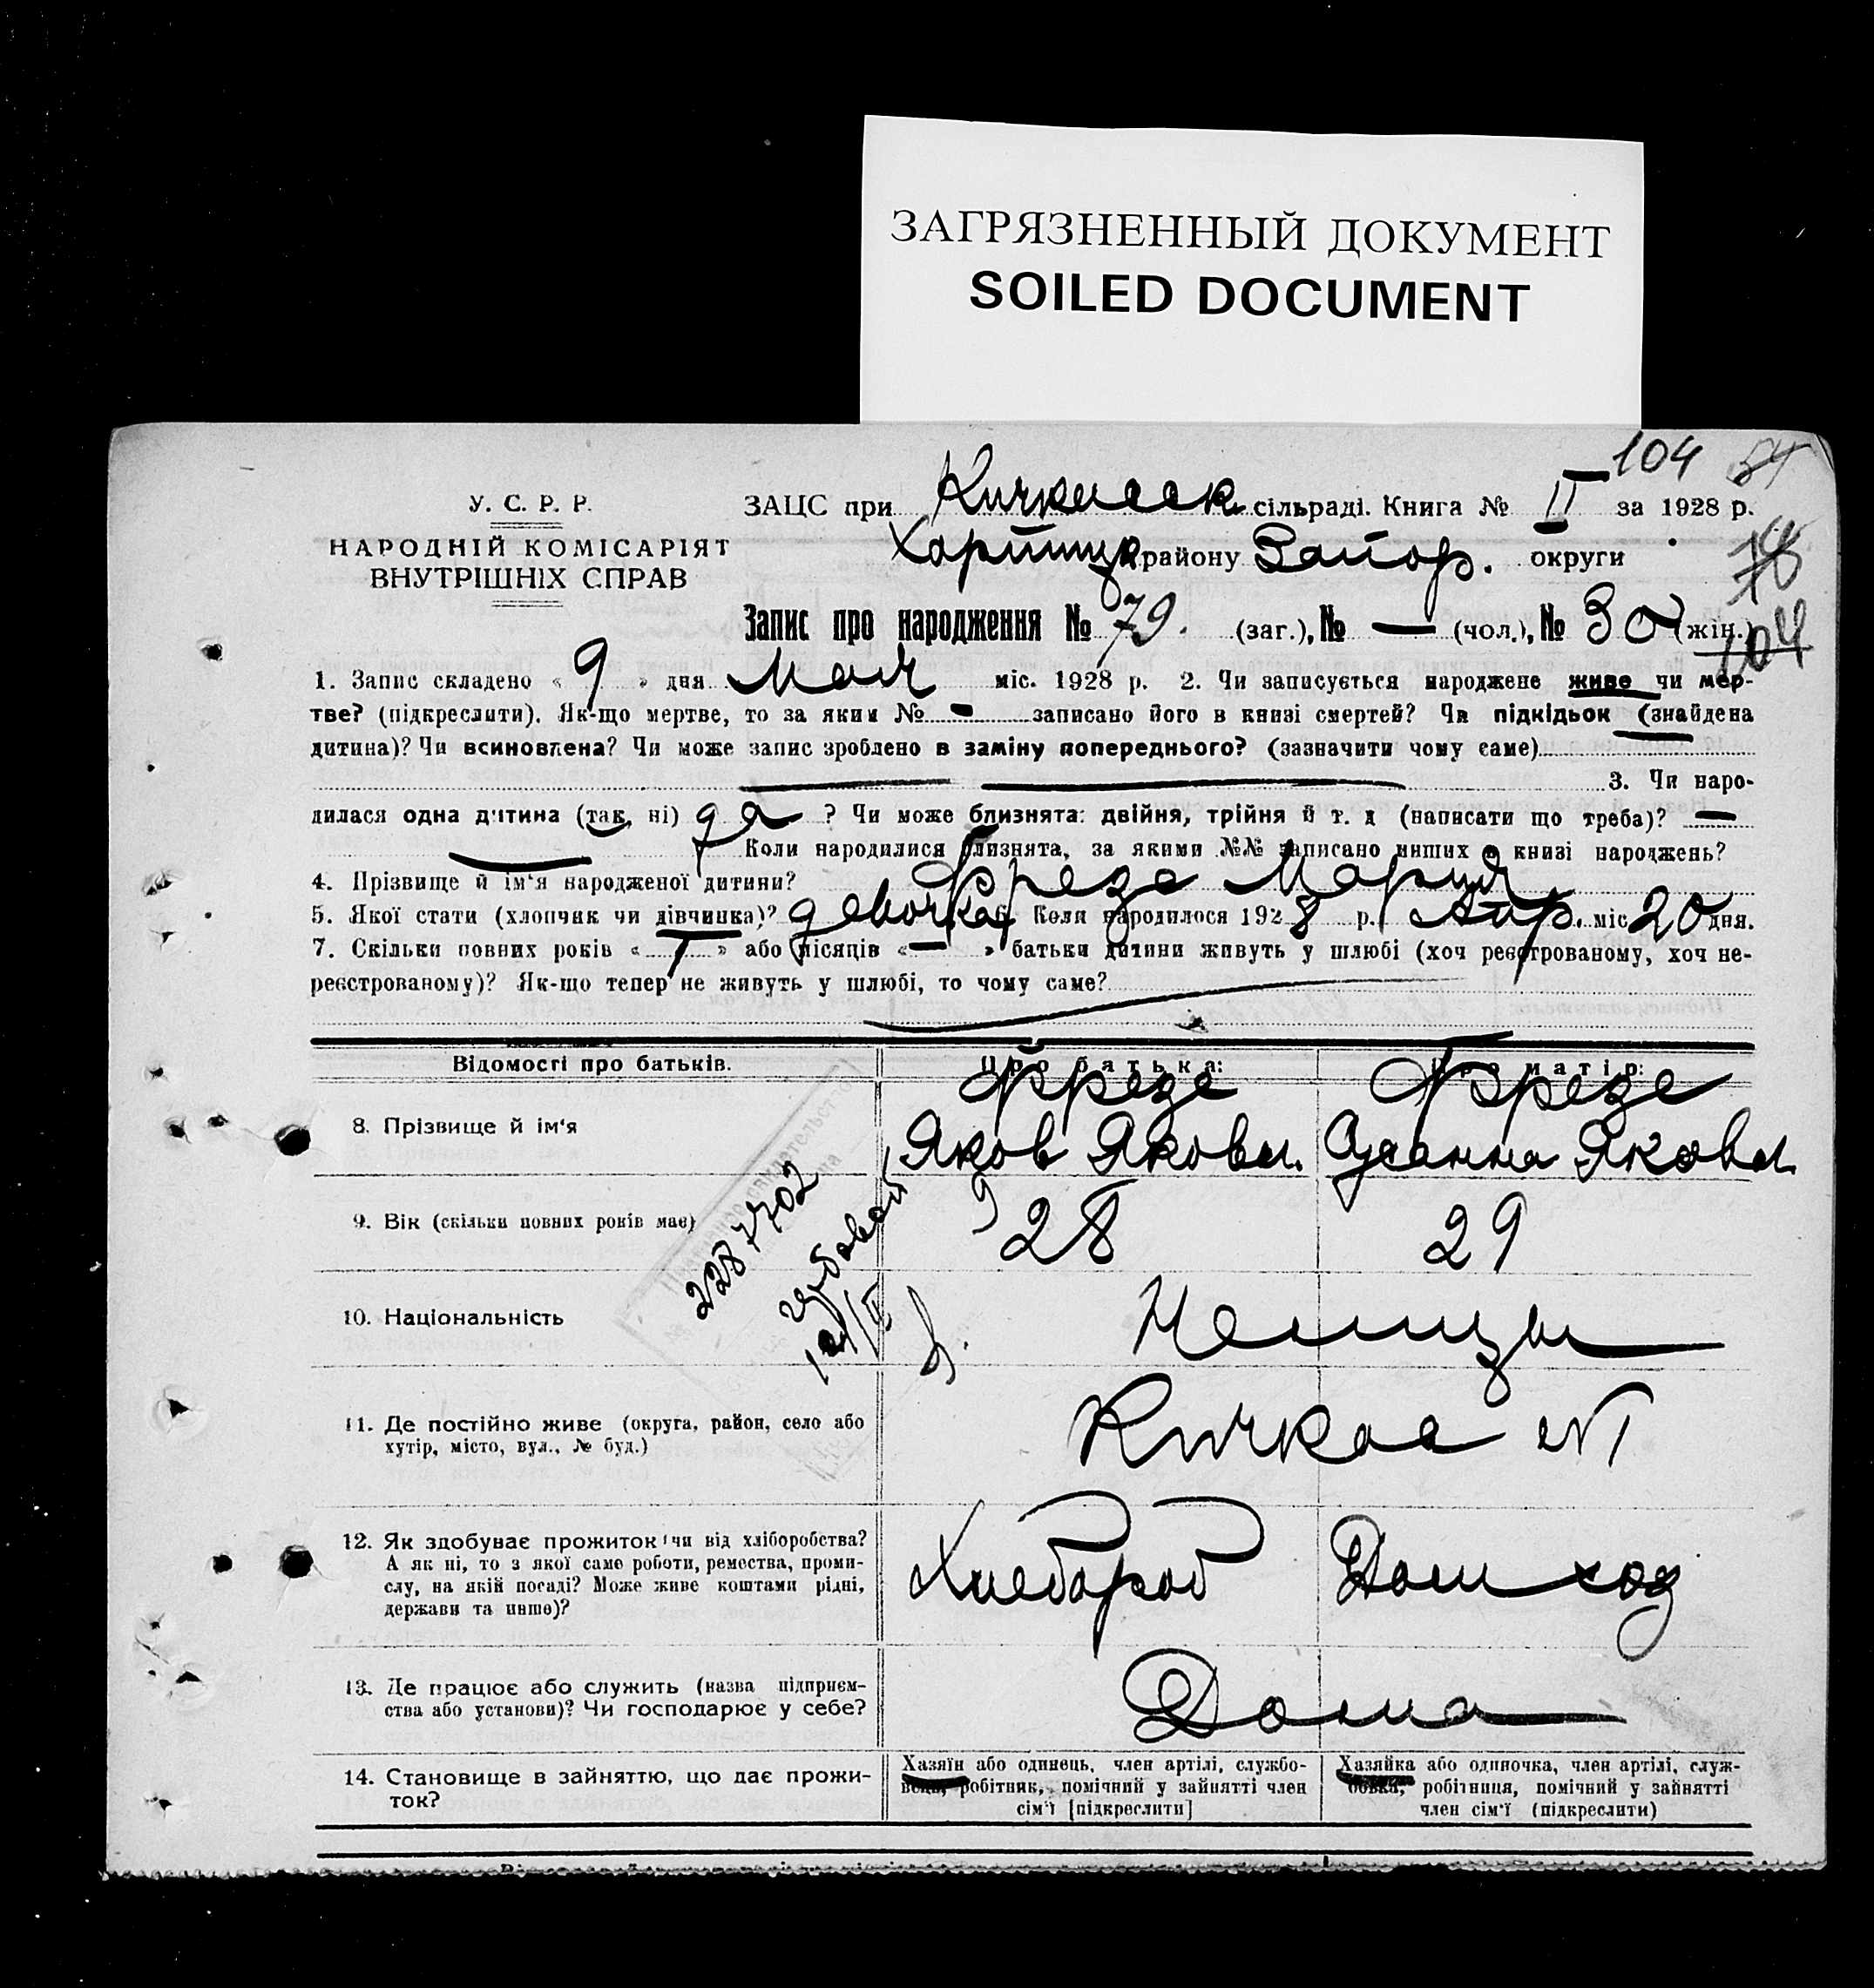 ЗАГРЯЗНЕННЫЙ ДОКУМЕНТ
SOILED DOCUMENT
104 54
У. С. Р. Р.
НАРОДНІЙ КОМІСАРІЯТ
ВНУТРІШНІХ СПРАВ
ЗАЦС при Кичкасск. сільраді. Книга № II за 1928 р.
Хортицк. району Запор. округи
78
Запис про народження № 79. (заг.), № — (чол.), № 30 (жін.)
104
1. Запис складено « 9 » дня Мая міс. 1928 р. 2. Чи записується народжене живе чи мер-
тве? (підкреслити). Як-що мертве, то за яким № - записано його в книзі смертей? Чи підкідьок (знайдена
дитина)? Чи всиновлена? Чи може запис зроблено в заміну попереднього? (зазначити чому саме)
3. Чи наро-
дилася одна дитина (так, ні) да ? Чи може близнята: двійня, трійня й т. д (написати що треба)? —
Коли народилися близнята, за якими №№ записано инших в книзі народжень?
4. Прізвище й ім'я народженої дитини? Фрезе Мария
5. Якої стати (хлопчик чи дівчинка)? девочка 6. Коли народилося 1928 р. Апр. міс 20 дня.
7. Скільки повних років « 1 » або місяців « — » батьки дитини живуть у шлюбі (хоч реєстрованому, хоч не-
реєстрованому)? Як-що тепер не живуть у шлюбі, то чому саме?
Відомості про батьків.
Про батька:
Про матір:
8. Прізвище й ім'я
Фрезе
Яков Яковл.
Фрезе
Сусанна Яковл.
9. Вік (скільки повних років має)
28
29
2287702
10. Національність
Немцы
11. Де постійно живе (округа, район, село або
хутір, місто, вул., № буд.)
Кичкас №1
12. Як здобуває прожиток (чи від хліборобства?
А як ні, то з якої саме роботи, ремества, проми-
слу, на якій посаді? Може живе коштами рідні,
держави та инше)?
Хлебороб
Дом ход
13. Де працює або служить (назва підприєм-
ства або установи)? Чи господарює у себе?
Дома
14. Становище в зайняттю, що дає прожи-
ток?
Хазяїн або одинець, член артілі, службо-
вець, робітник, помічний у зайнятті член
сім'ї [підкреслити]
Хазяйка або одиночка, член артілі, служ-
бовка, робітниця, помічний у зайнятті
член сім'ї (підкреслити)